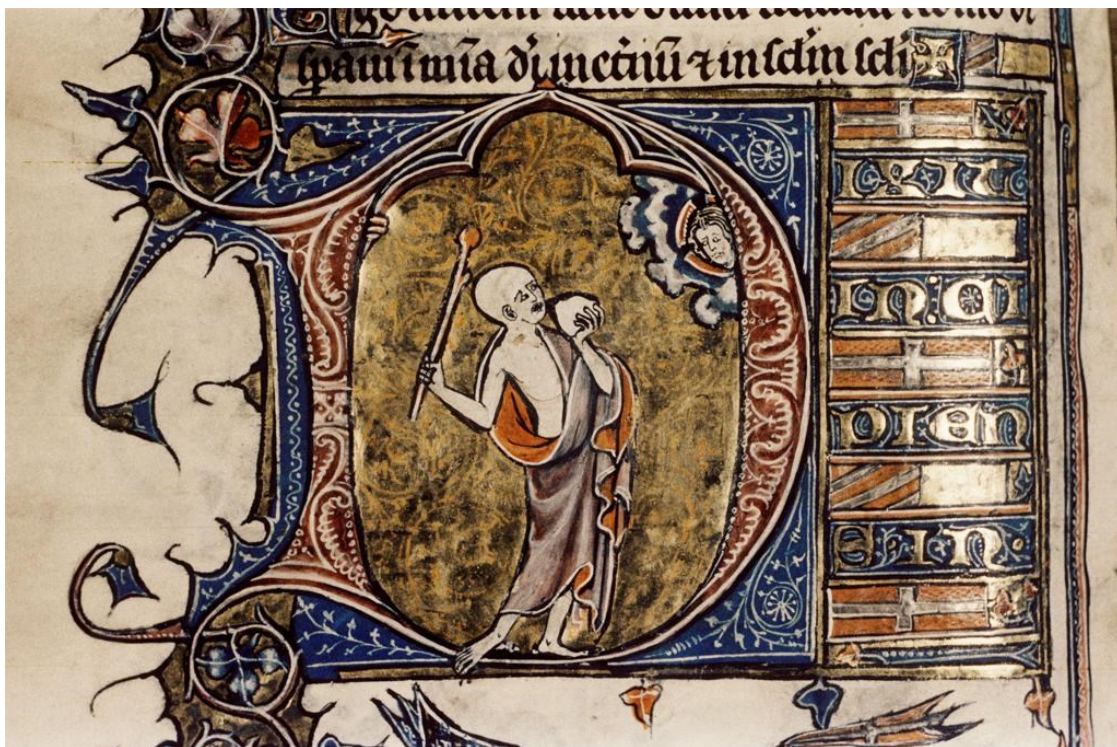 spaui ī mīa dī inet̄nū ⁊ in sclm̄ scli
D
IXIT
INSI
PIEN
S IN.